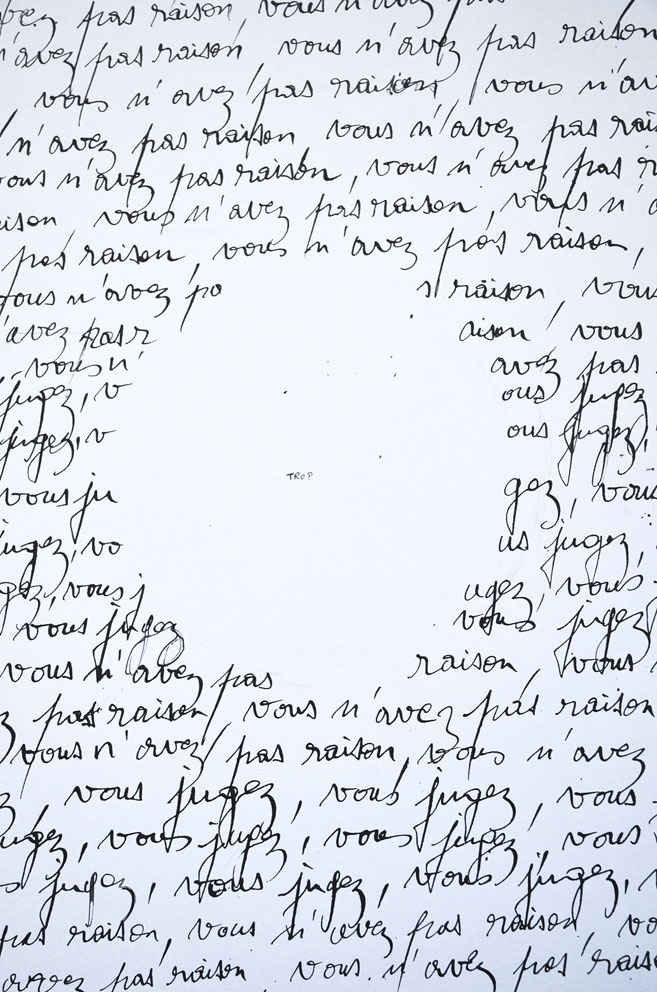 pas raison, vous n'avez pas
n'avez pas raison, vous n'avez pas raison
vous n'avez pas raison, vous n'av
n'avez pas raison, vous n'avez pas rai
vous n'avez pas raison, vous n'avez pas r
aison, vous n'avez pas raison, vous n'a
pas raison, vous n'avez pas raison,
vous n'avez pa s raison, vous
'avez pas r aison, vous
, vous n' avez pas
jugez, v ous jugez
jugez, v ous jugez,
TROP
vous ju gez, vous
jugez, vo us jugez,
gez, vous j ugez, vous
vous jugez vous jugez
vous n'avez pas raison, vous
z pas raison, vous n'avez pas raison
vous n'avez pas raison, vous n'avez
z, vous jugez, vous jugez, vous
ugez, vous jugez, vous jugez, vous
s jugez, vous jugez, vous jugez,
pas raison, vous n'avez pas raison, vo
avez pas raison vous n'avez pas raison